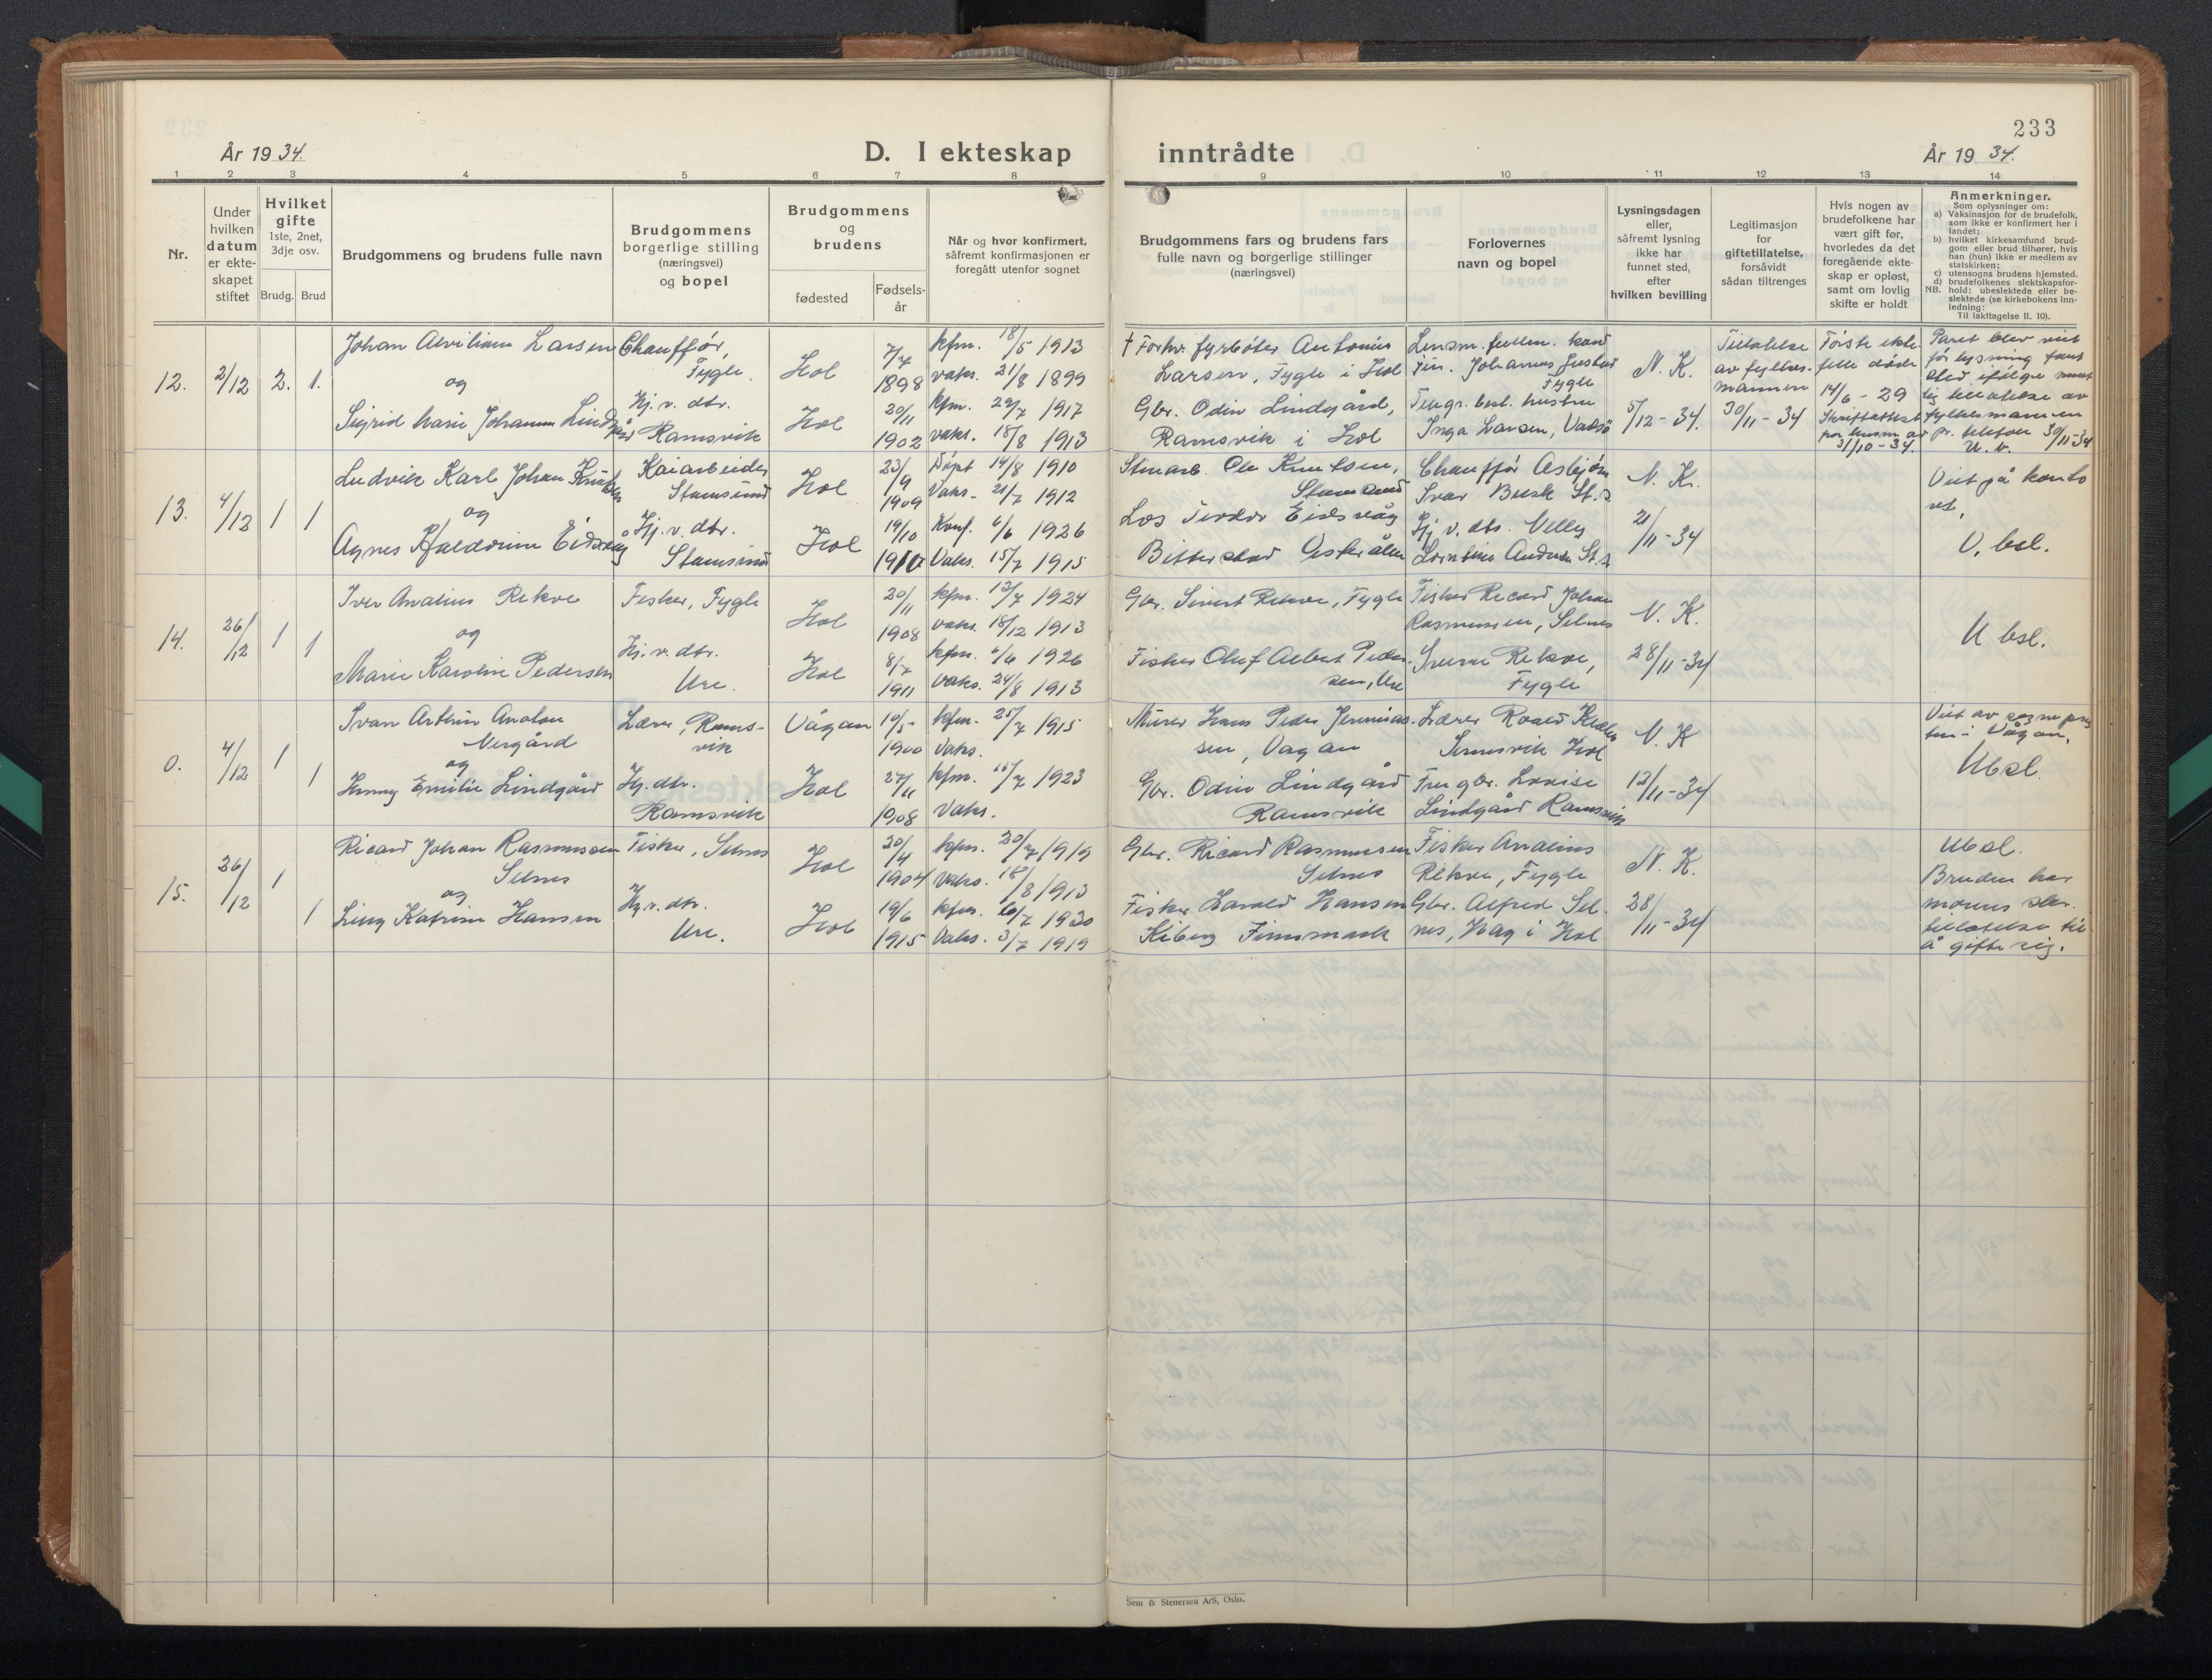 233
År 1934.
D. I ekteskap
inntrådte
År 1934.
1 2 3 4 5 6 7 8 9 10 11 12 13 14
Nr.
Under
hvilken
datum
er ekte-
skapet
stiftet
Hvilket
gifte
1ste, 2net,
3dje osv.
Brudg. Brud
Brudgommens og brudens fulle navn
Brudgommens
borgerlige stilling
(næringsvei)
og bopel
Brudgommens
og
brudens
fødested
Fødsels-
år
Når og hvor konfirmert,
såfremt konfirmasjonen er
foregått utenfor sognet
Brudgommens fars og brudens fars
fulle navn og borgerlige stillinger
(næringsvei)
Forlovernes
navn og bopel
Lysningsdagen
eller,
såfremt lysning
ikke har
funnet sted,
efter
hvilken bevilling
Legitimasjon
for
giftetillatelse,
forsåvidt
sådan tiltrenges
Hvis nogen av
brudefolkene har
vært gift før,
hvorledes da det
foregående ekte-
skap er opløst,
samt om lovlig
skifte er holdt
Anmerkninger.
Som oplysninger om:
a) Vaksinasjon for de brudefolk,
som ikke er konfirmert her i
landet;
b) hvilket kirkesamfund brud-
gom eller brud tilhører, hvis
han (hun) ikke er medlem av
statskirken;
c) utensogns brudens hjemsted.
d) brudefolkenes slektskapsfor-
NB. hold: ubeslektede eller be-
slektede (se kirkebokens inn-
ledning:
Til iakttagelse II. 10).
12. 2/12 2. 1.
Johan Alvilian Larsen
og
Sigrid Marie Johanna Lindgård
Chauffør,
Fygle.
Hj. v. dtr.
Ramsvik
Hol
Hol
7/7
1898
20/11
1902
kfm. 18/5 1913
vaks. 21/8 1899
kfm. 29/7 1917
vaks. 18/8 1913
† Forhv. fyrbøter Antonius
Larsen, Fygle i Hol
Gbr. Odin Lindgård,
Ramsvik i Hol
Lensm. fullm. kand
Johannes Justad
Fygle
hustru
Inga Larsen, Vadsø
N. K.
5/12 - 34.
Tillatelse
av fylkes-
mannen
30/11 - 34
Første ekte-
felle døde
14/6 - 29
Skifteattest
31/10 - 34.
Paret blev viet
før lysning fant
sted ifølge munt
lig tillatelse av
fylkesmannen
pr. telefon 30/11-34
U. b.
13. 4/12 1 1
Ludvik Karl Johan Knutsen
og
Agnes Haldorine Eidsvåg
Kaiarbeider
Stamsund
Hj. v. dtr.
Stamsund
Hol
Hol
23/9
1909
19/10
1910
Døpt 14/8 1910
Vaks. 21/7 1912
Konf. 6/6 1926
Vaks. 15/7 1915
Ole Knutsen,
Stamsund
Los Teodor Eidsvåg
Bitterstad Vesterålen
Chauffør Asbjørn
Ivar Busk St.s
Hj. v. dtr. Nelly
Lorentine Andersen St.s
N. K.
21/11 - 34
Viet på konto
ret.
U. bsl.
14. 26/12 1 1
Iver Analius Rekve
og
Marie Karoline Pedersen
Fisker, Fygle
Hj. v. dtr.
Ure.
Hol
Hol
20/11
1908
8/7
1911
kfm. 13/7 1924
vaks. 18/12 1913
kfm. 6/6 1926
vaks. 24/8 1913
Gbr. Sivert Rekve, Fygle
Fisker Oluf Albert Peder-
sen, Ure
Fisker Ricard Johan
Rasmussen, Selnes
Sverre Rekve,
Fygle
N. K.
28/11 - 34
U bsl.
0. 4/12 1 1
Ivan Arthur Anaton
Nergård
og
Jenny Emilie Lindgård
Lærer, Rams-
vik
Hj. dtr.
Ramsvik
Vågan
Hol
10/5
1900
27/11
1908
kfm. 25/7 1915
Vaks.
kfm. 15/7 1923
Vaks.
Murer Hans Peder Jeremias-
sen, Vågan
Gbr. Odin Lindgård
Ramsvik
Lærer Roald
Hol
Fru gbr. Lovise
Lindgård Ramsvik
N. K
12/11 - 34
Viet av sogneprs
ten i Vågan.
Ubsl.
15. 26/12 1 1
Ricard Johan Rasmussen
Selnes
og
Liny Katrine Hansen
Fisker, Selnes
Hj. v. dtr.
Ure.
Hol
Hol
20/4
1904
19/6
1915
kfm. 20/7 1919
vaks. 18/8 1913
kfm. 6/7 1930
Vaks. 3/7 1919
Gbr. Ricard Rasmussen
Selnes
Fisker Harald Hansen
Kiberg Finnmark
Fisker Analius
Rekve, Fygle
Gbr. Alfred Sel-
nes, Hag i Hol
N. K.
28/11 - 34
Ubsl.
Bruden har
morens skr.
tillatelse til
å gifte sig.
Sem & Stenersen A/S, Oslo.